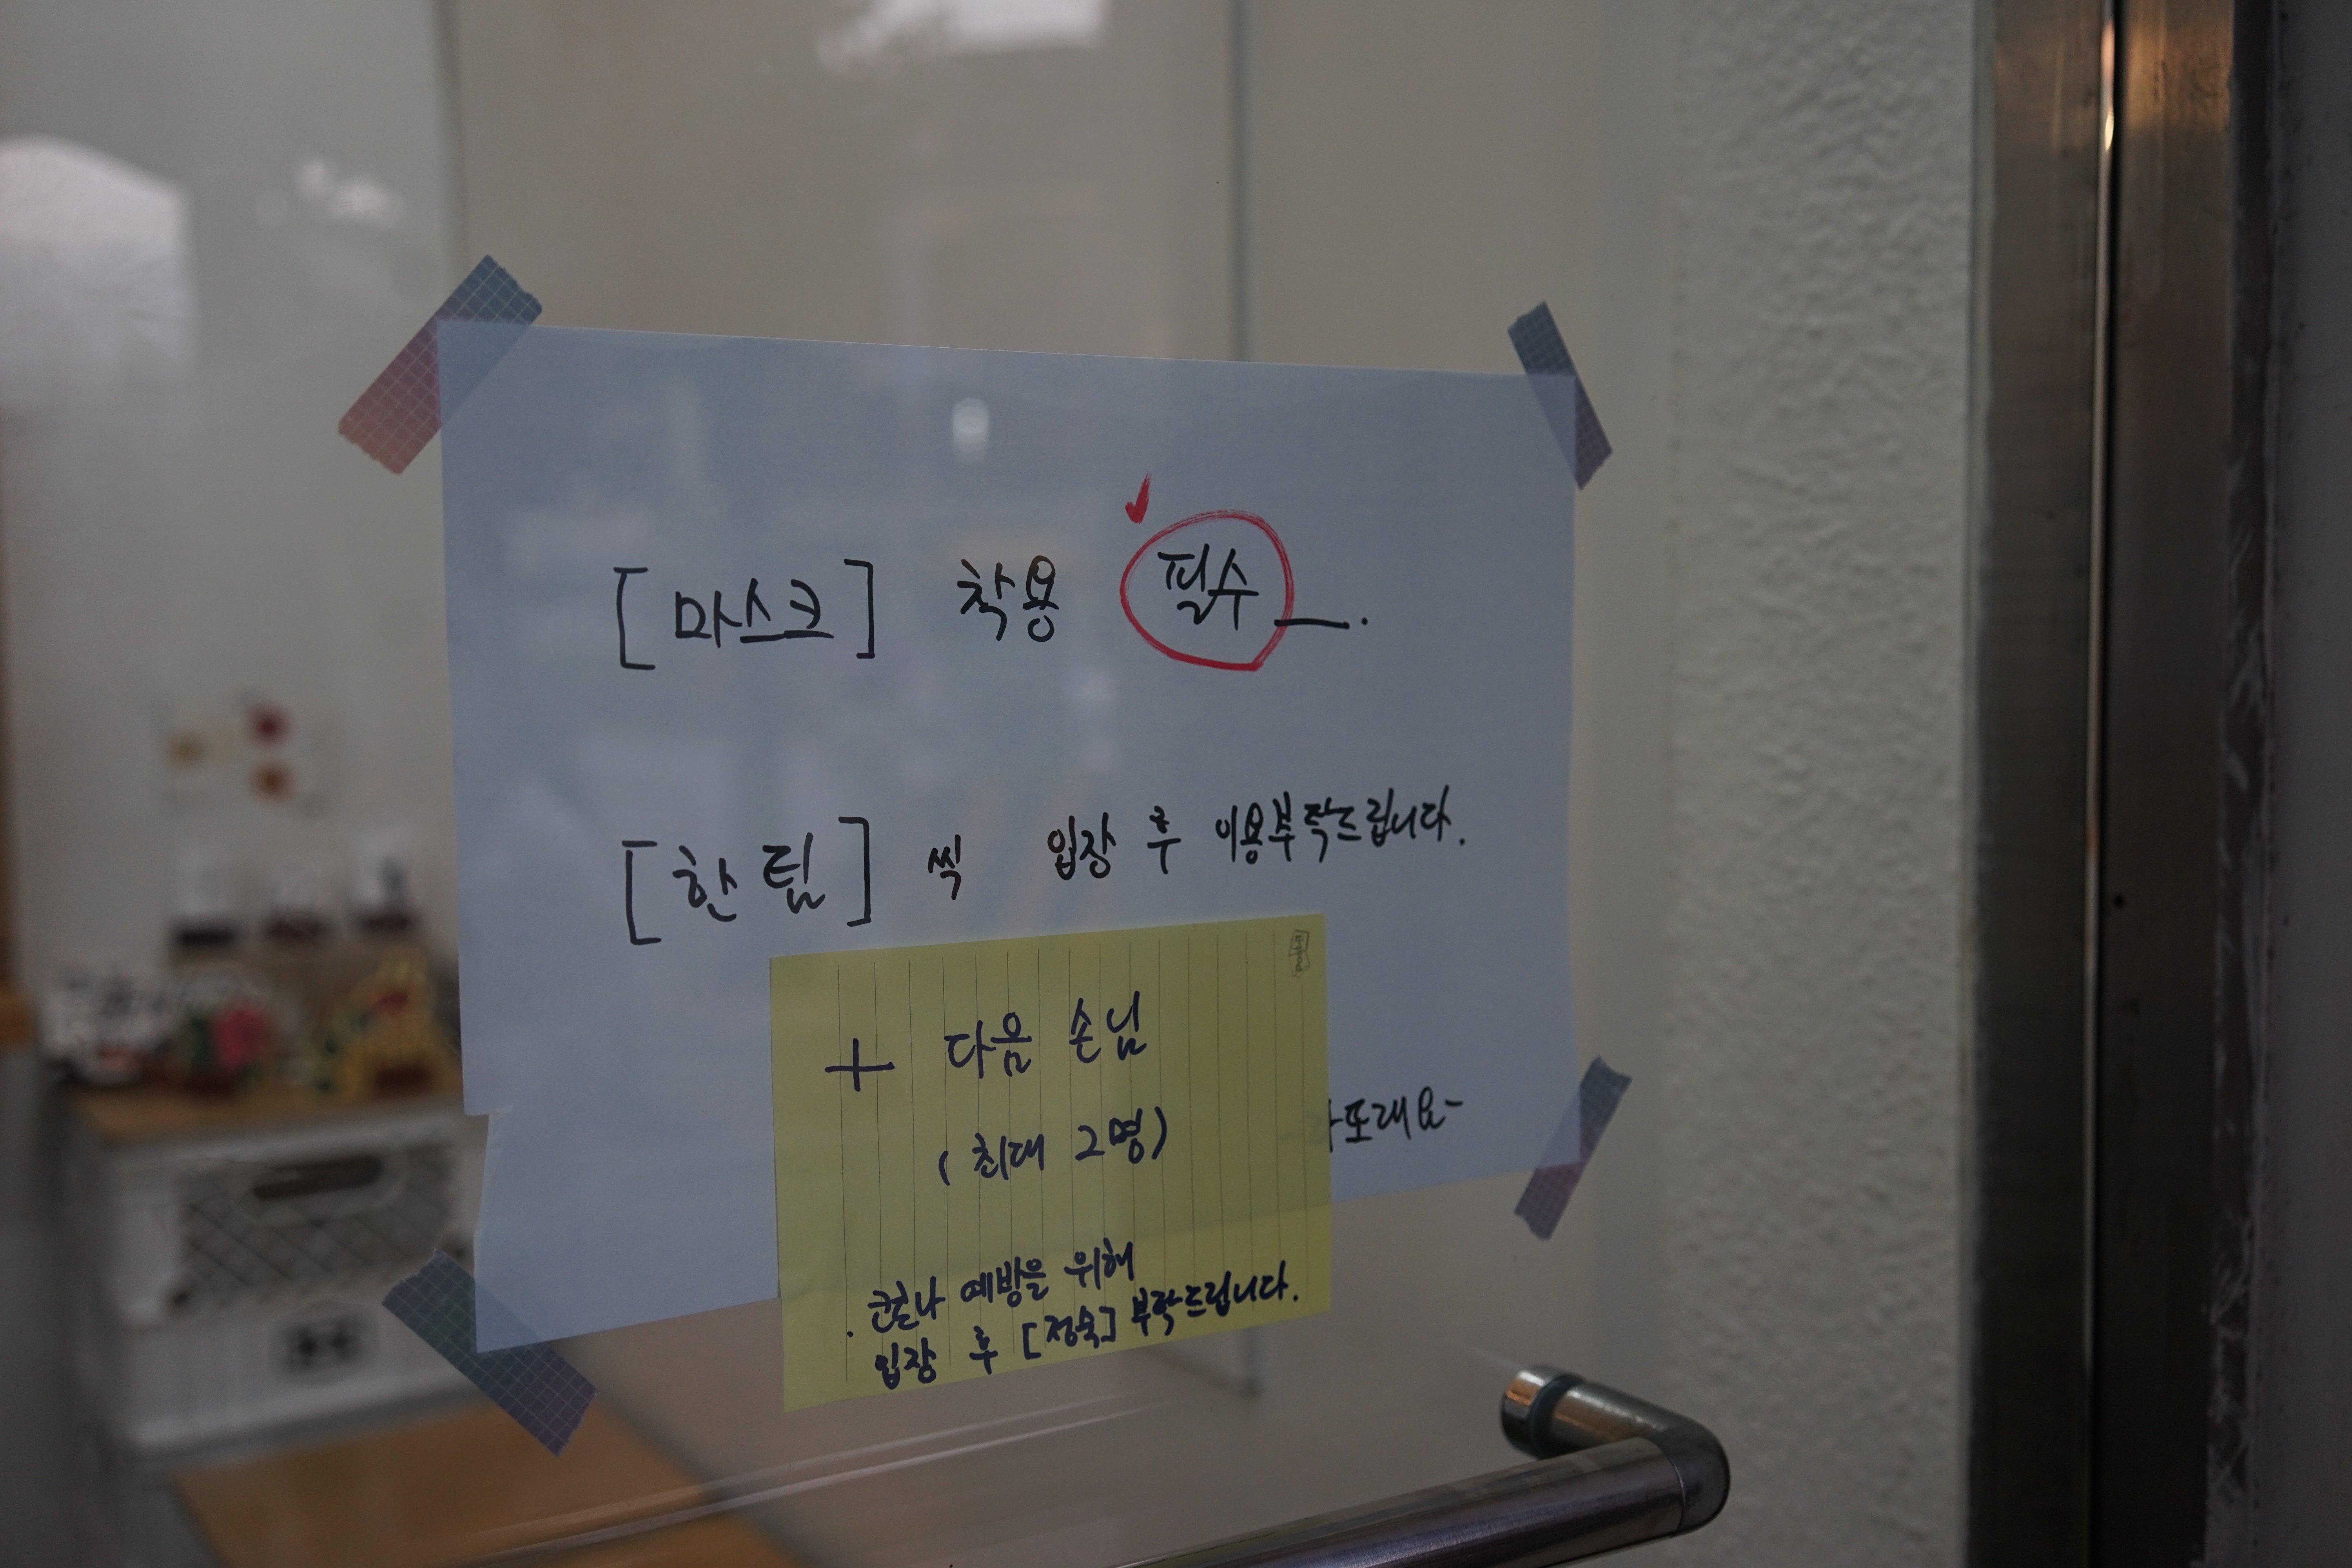 [마스크] 착용 필수.
[한팀] 씩 입장 후 이용부탁드립니다.
+ 다음 손님
(최대 2명)
또래요~
. 코로나 예방을 위해
입장 후 [정숙] 부탁드립니다.
Post-it